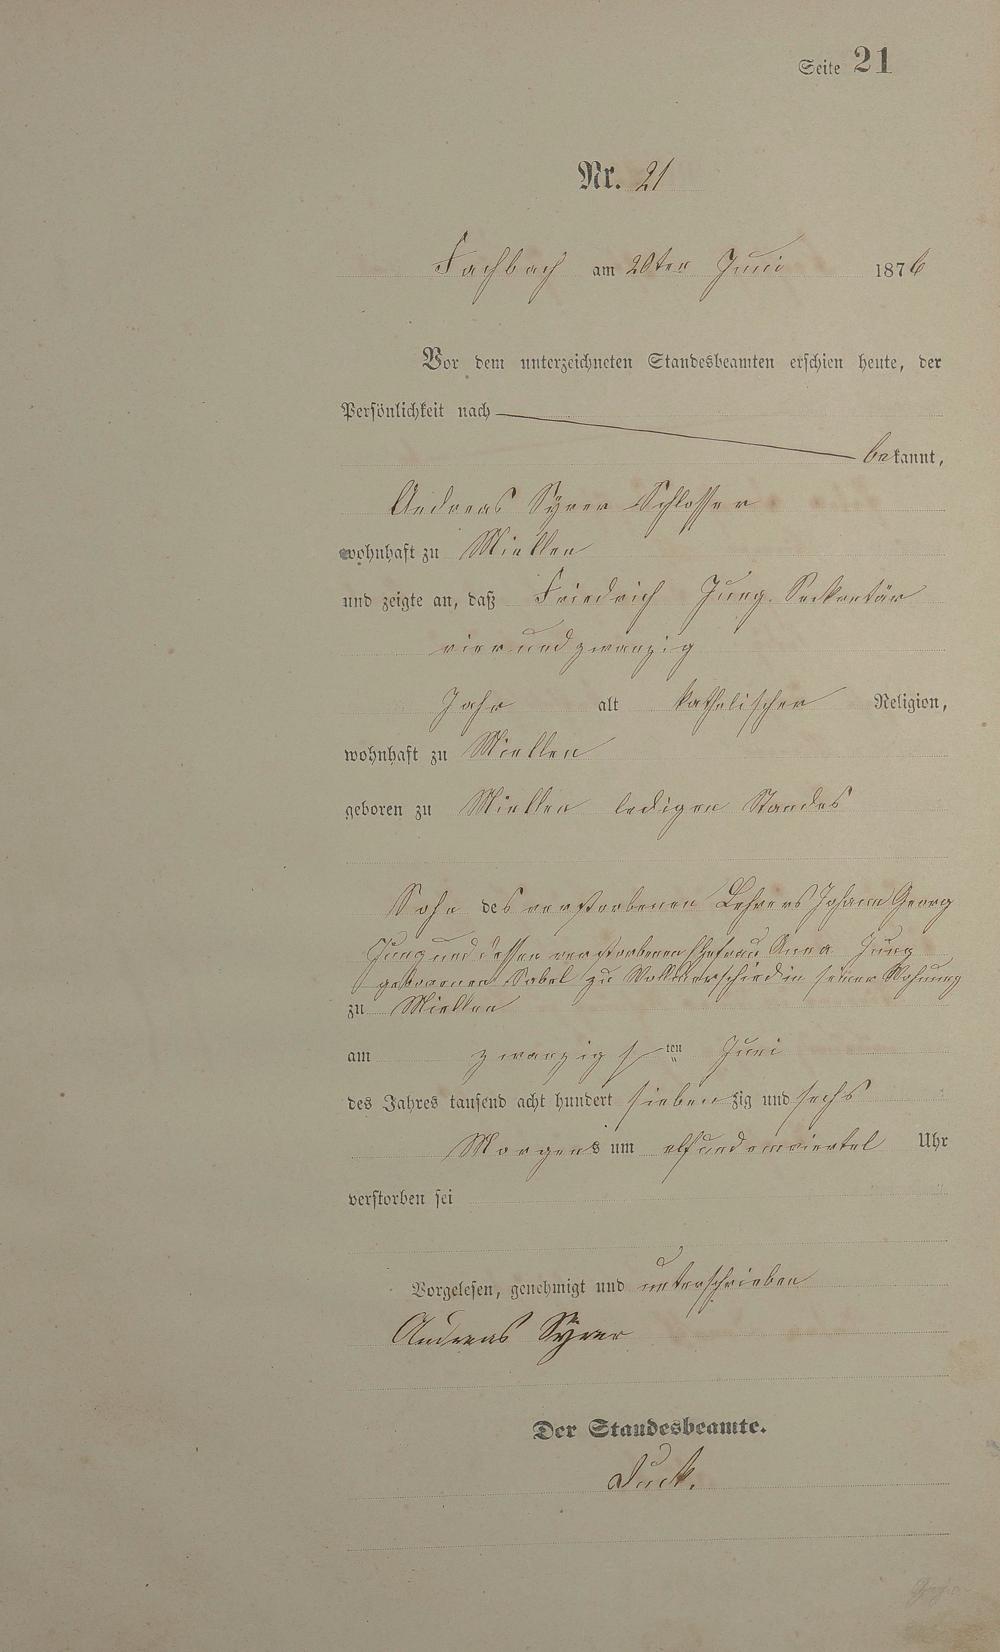 Seite 21
Nr. 21
Fachbach am 20ter Juni 1876
Vor dem unterzeichneten Standesbeamten erschien heute, der
Persönlichkeit nach
bekannt,
Andreas Syrer Schlosser
wohnhaft zu Miellen
und zeigte an, daß Friedrich Jung Seckretär
vierundzwanzig
Jahr alt katholischer Religion,
wohnhaft zu Miellen
geboren zu Miellen ledigen Standes
Sohn des verstorbenen Lehrers Johann Georg
Jung und dessen verstorbenen Ehefrau Anna Jung
geborenen Sabel zu in seiner Wohnung
zu Miellen
am zwanzigsten Juni
des Jahres tausend acht hundert siebenzig und sechs
Morgens um elfundeinviertel Uhr
verstorben sei
Vorgelesen, genehmigt und unterschrieben
Andreas Syrer
Der Standesbeamte.